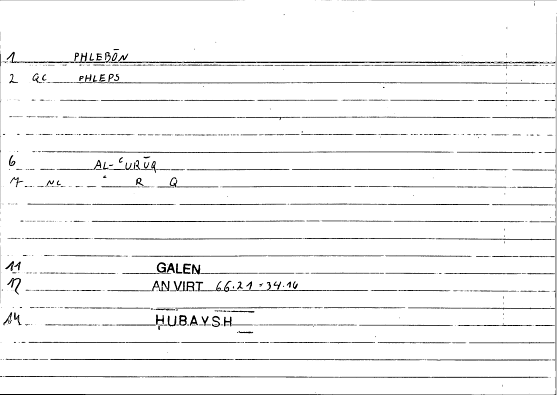 1 PHLEBŌN
2 GC PHLEPS
6 AL-ʿURŪQ
7 NL ʿ R Q
11 GALEN
12 AN VIRT 66.21 = 34.16
14 ḤUBAYSH